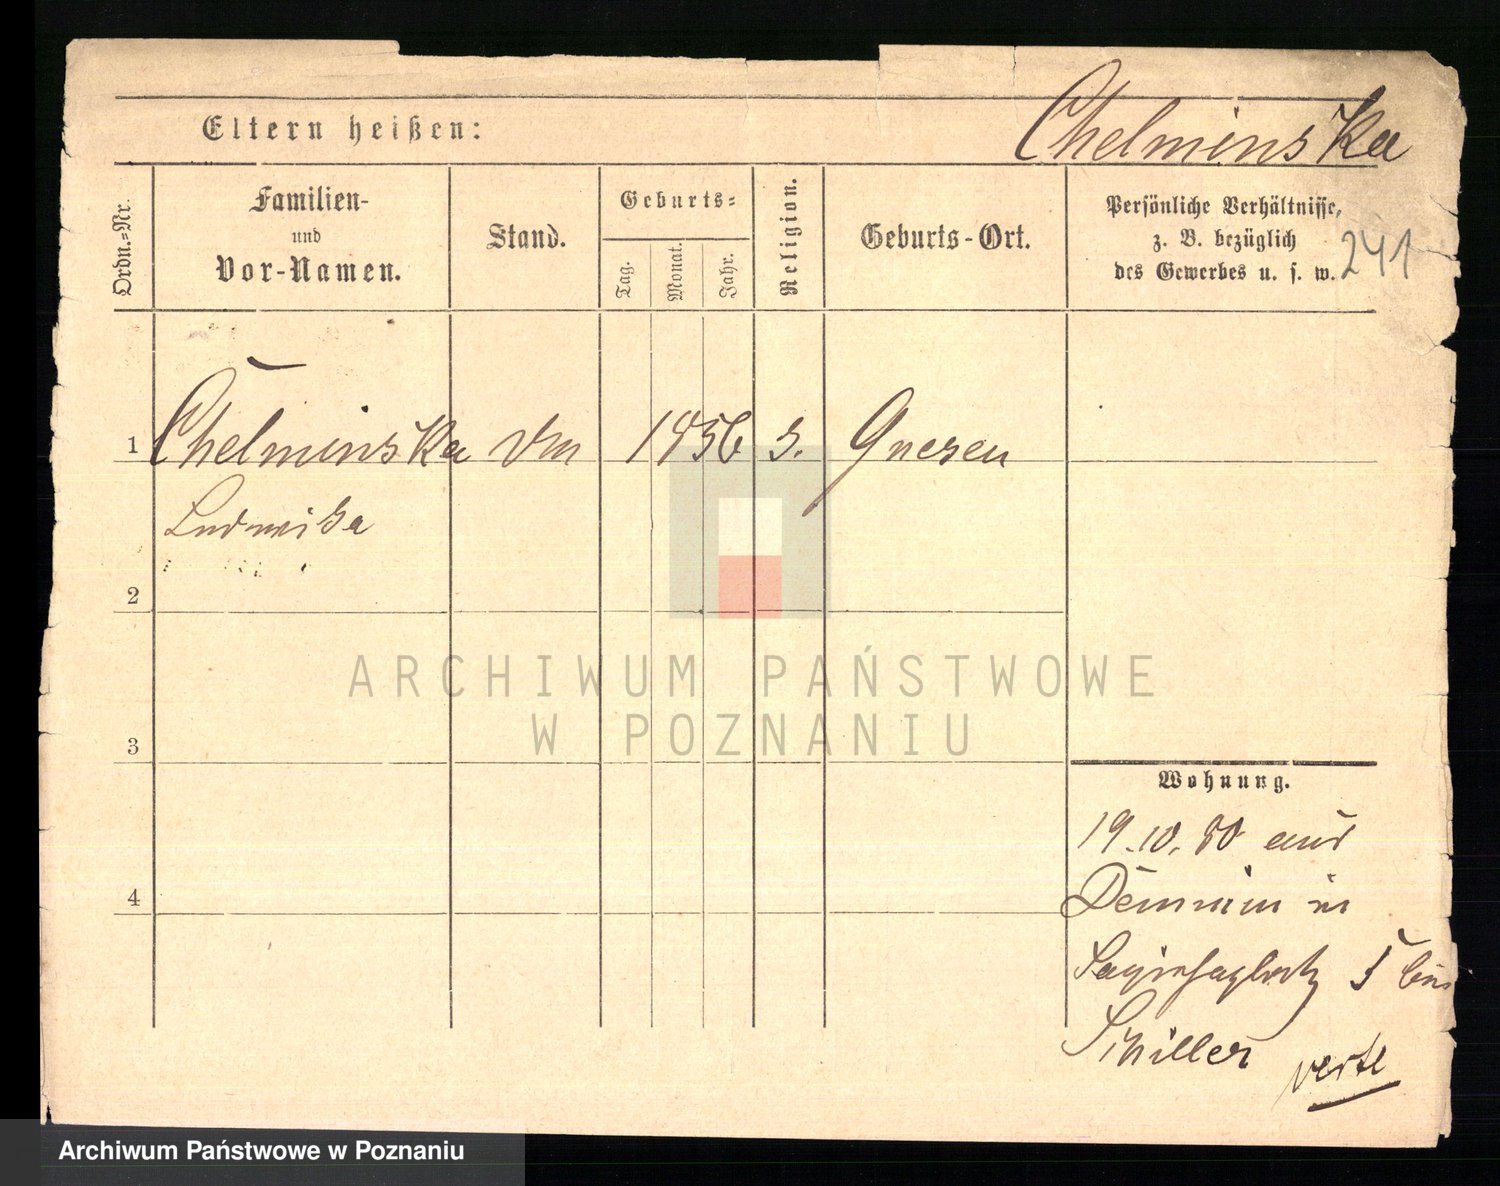 Eltern heißen:
Chelminska
Ordn.=Nr.
Familien-
und
Vor-Namen.
Stand.
Geburts=
Tag.
Monat.
Jahr.
Religion.
Geburts-Ort.
Persönliche Verhältnisse,
z. B. bezüglich
des Gewerbes u. s. w.
241
1 Chelminska 1856 Gnesen
Ludwika
2
3
4
Wohnung.
19.10.80 aus
in
Sapiehaplatz 5 bei
Schiller
verte
ARCHIWUM PAŃSTWOWE
W POZNANIU
Archiwum Państwowe w Poznaniu